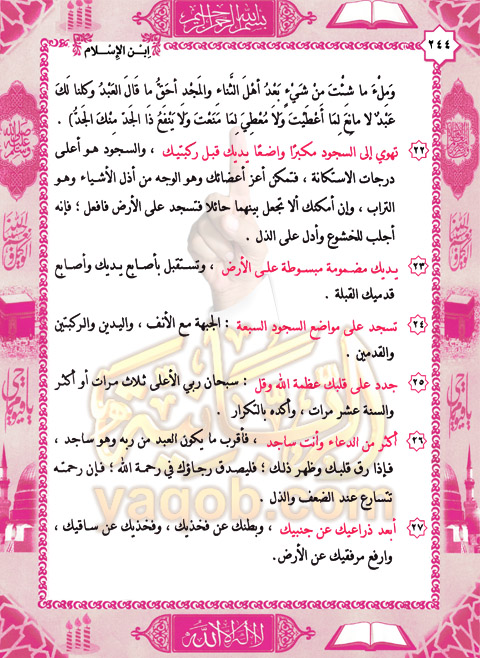 بسم الله الرحمن الرحيم
٢٤٤
ابن الإسلام
وَمِلْءَ ما شئْتَ مِنْ شَيْءٍ بَعِدُ أَهْلَ الثَّناء والمَجْد أَحَقُّ ما قَالَ العَبْدُ وكلنا لَكَ
عَبْدٌ لا مانِعَ لِمَا أَعْطَيْتَ وَلَا مُعْطِيَ لِمَا مَنَعْتَ وَلَا يَنْفَعُ ذَا الجَدّ منْكَ الجَدُّ ) .
٢٢ تهوي إلى السجود مكبرًا واضعًا يديك قبل ركبتيك ، والسجود هو أعلى
درجات الاستكانة ، فتمكن أعز أعضائك وهو الوجه من أذل الأشياء وهو
التراب ، وإن أمكنك ألا تجعل بينهما حائلا فتسجد على الأرض فافعل ؛ فإنه
أجلب للخشوع وأدل على الذل .
٢٣ يديك مضمومة مبسوطة على الأرض ، وتستقبل بأصابع يديك وأصابع
قدميك القبلة .
٢٤ تسجد على مواضع السجود السبعة : الجبهة مع الأنف ، واليدين والركبتين
والقدمين .
٢٥ جدد على قلبك عظمة الله وقل : سبحان ربي الأعلى ثلاث مرات أو أكثر
والسنة عشر مرات ، وأكده بالتكرار .
٢٦ أكثر من الدعاء وأنت ساجد ، فأقرب ما يكون العبد من ربه وهو ساجد ،
فإذا رق قلبك وظهر ذلك ؛ فليصدق رجاؤك في رحمة الله ؛ فإن رحمته
تتسارع عند الضعف والذل .
٢٧ أبعد ذراعيك عن جنبيك ، وبطنك عن فخذيك ، وفخذيك عن ساقيك ،
وارفع مرفقيك عن الأرض.
yaqob.com
لا إله إلا الله